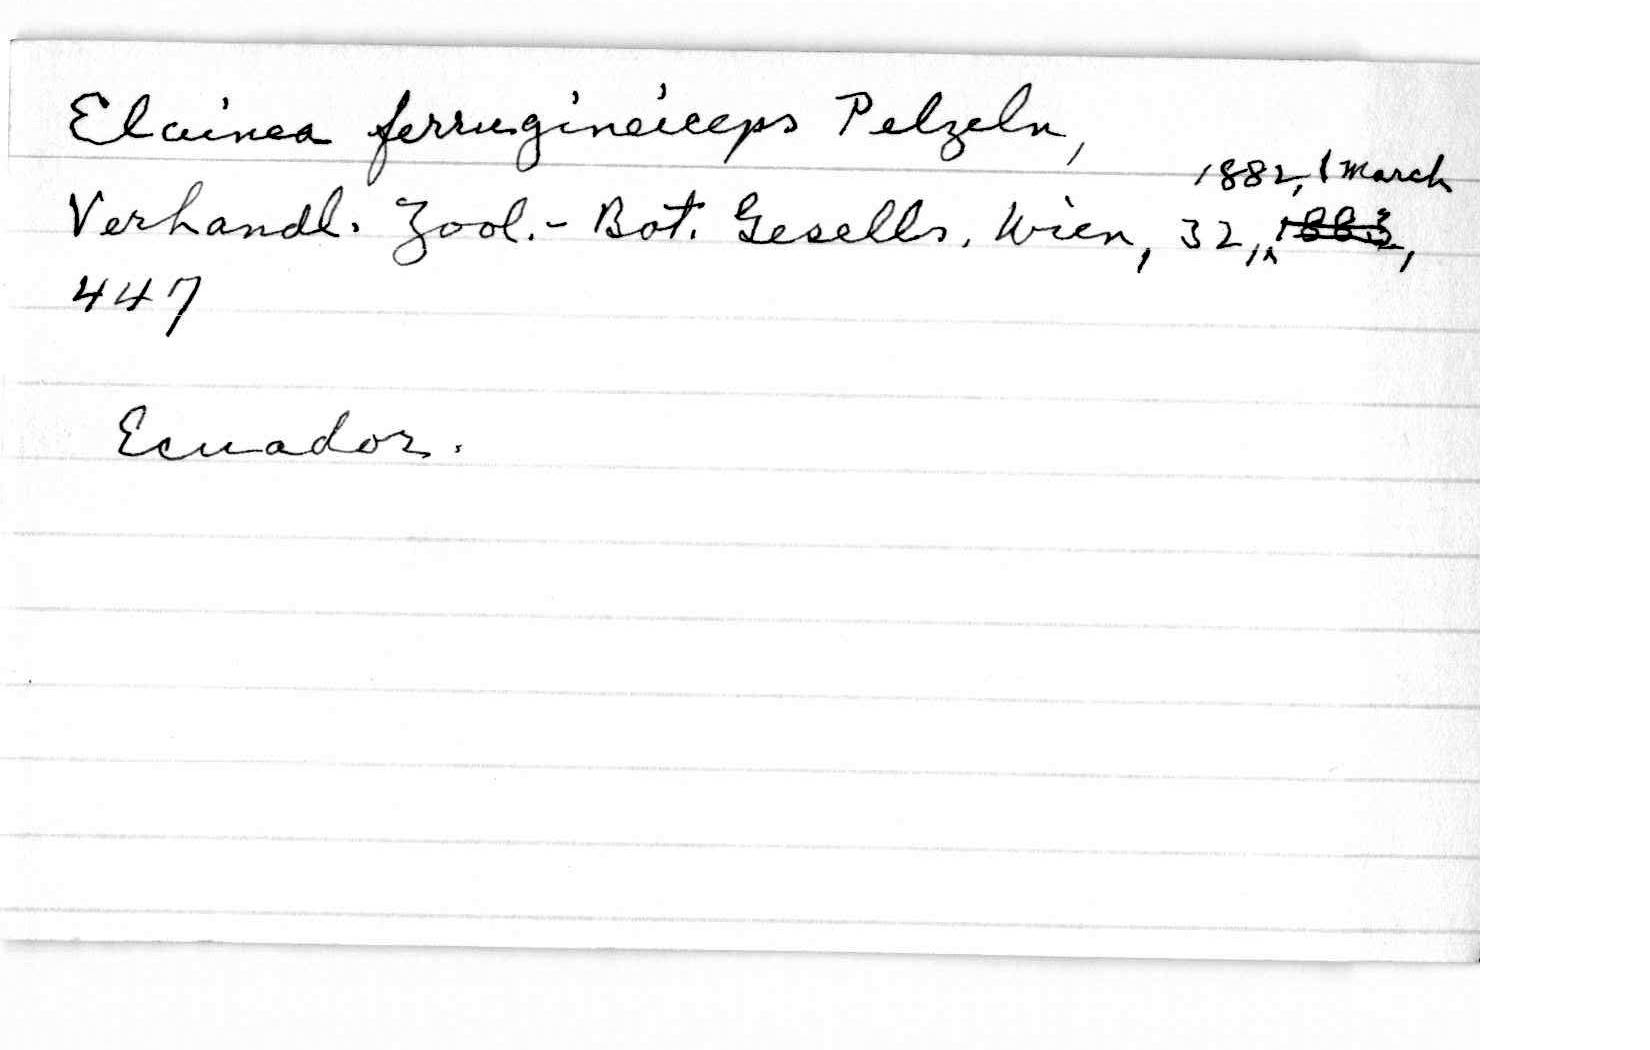 Elainea ferrugineiceps Pelzeln,
1882, 1 March
Verhandl. Zool.-Bot. Gesells, Wien, 32, 1883,
447
Ecuador.